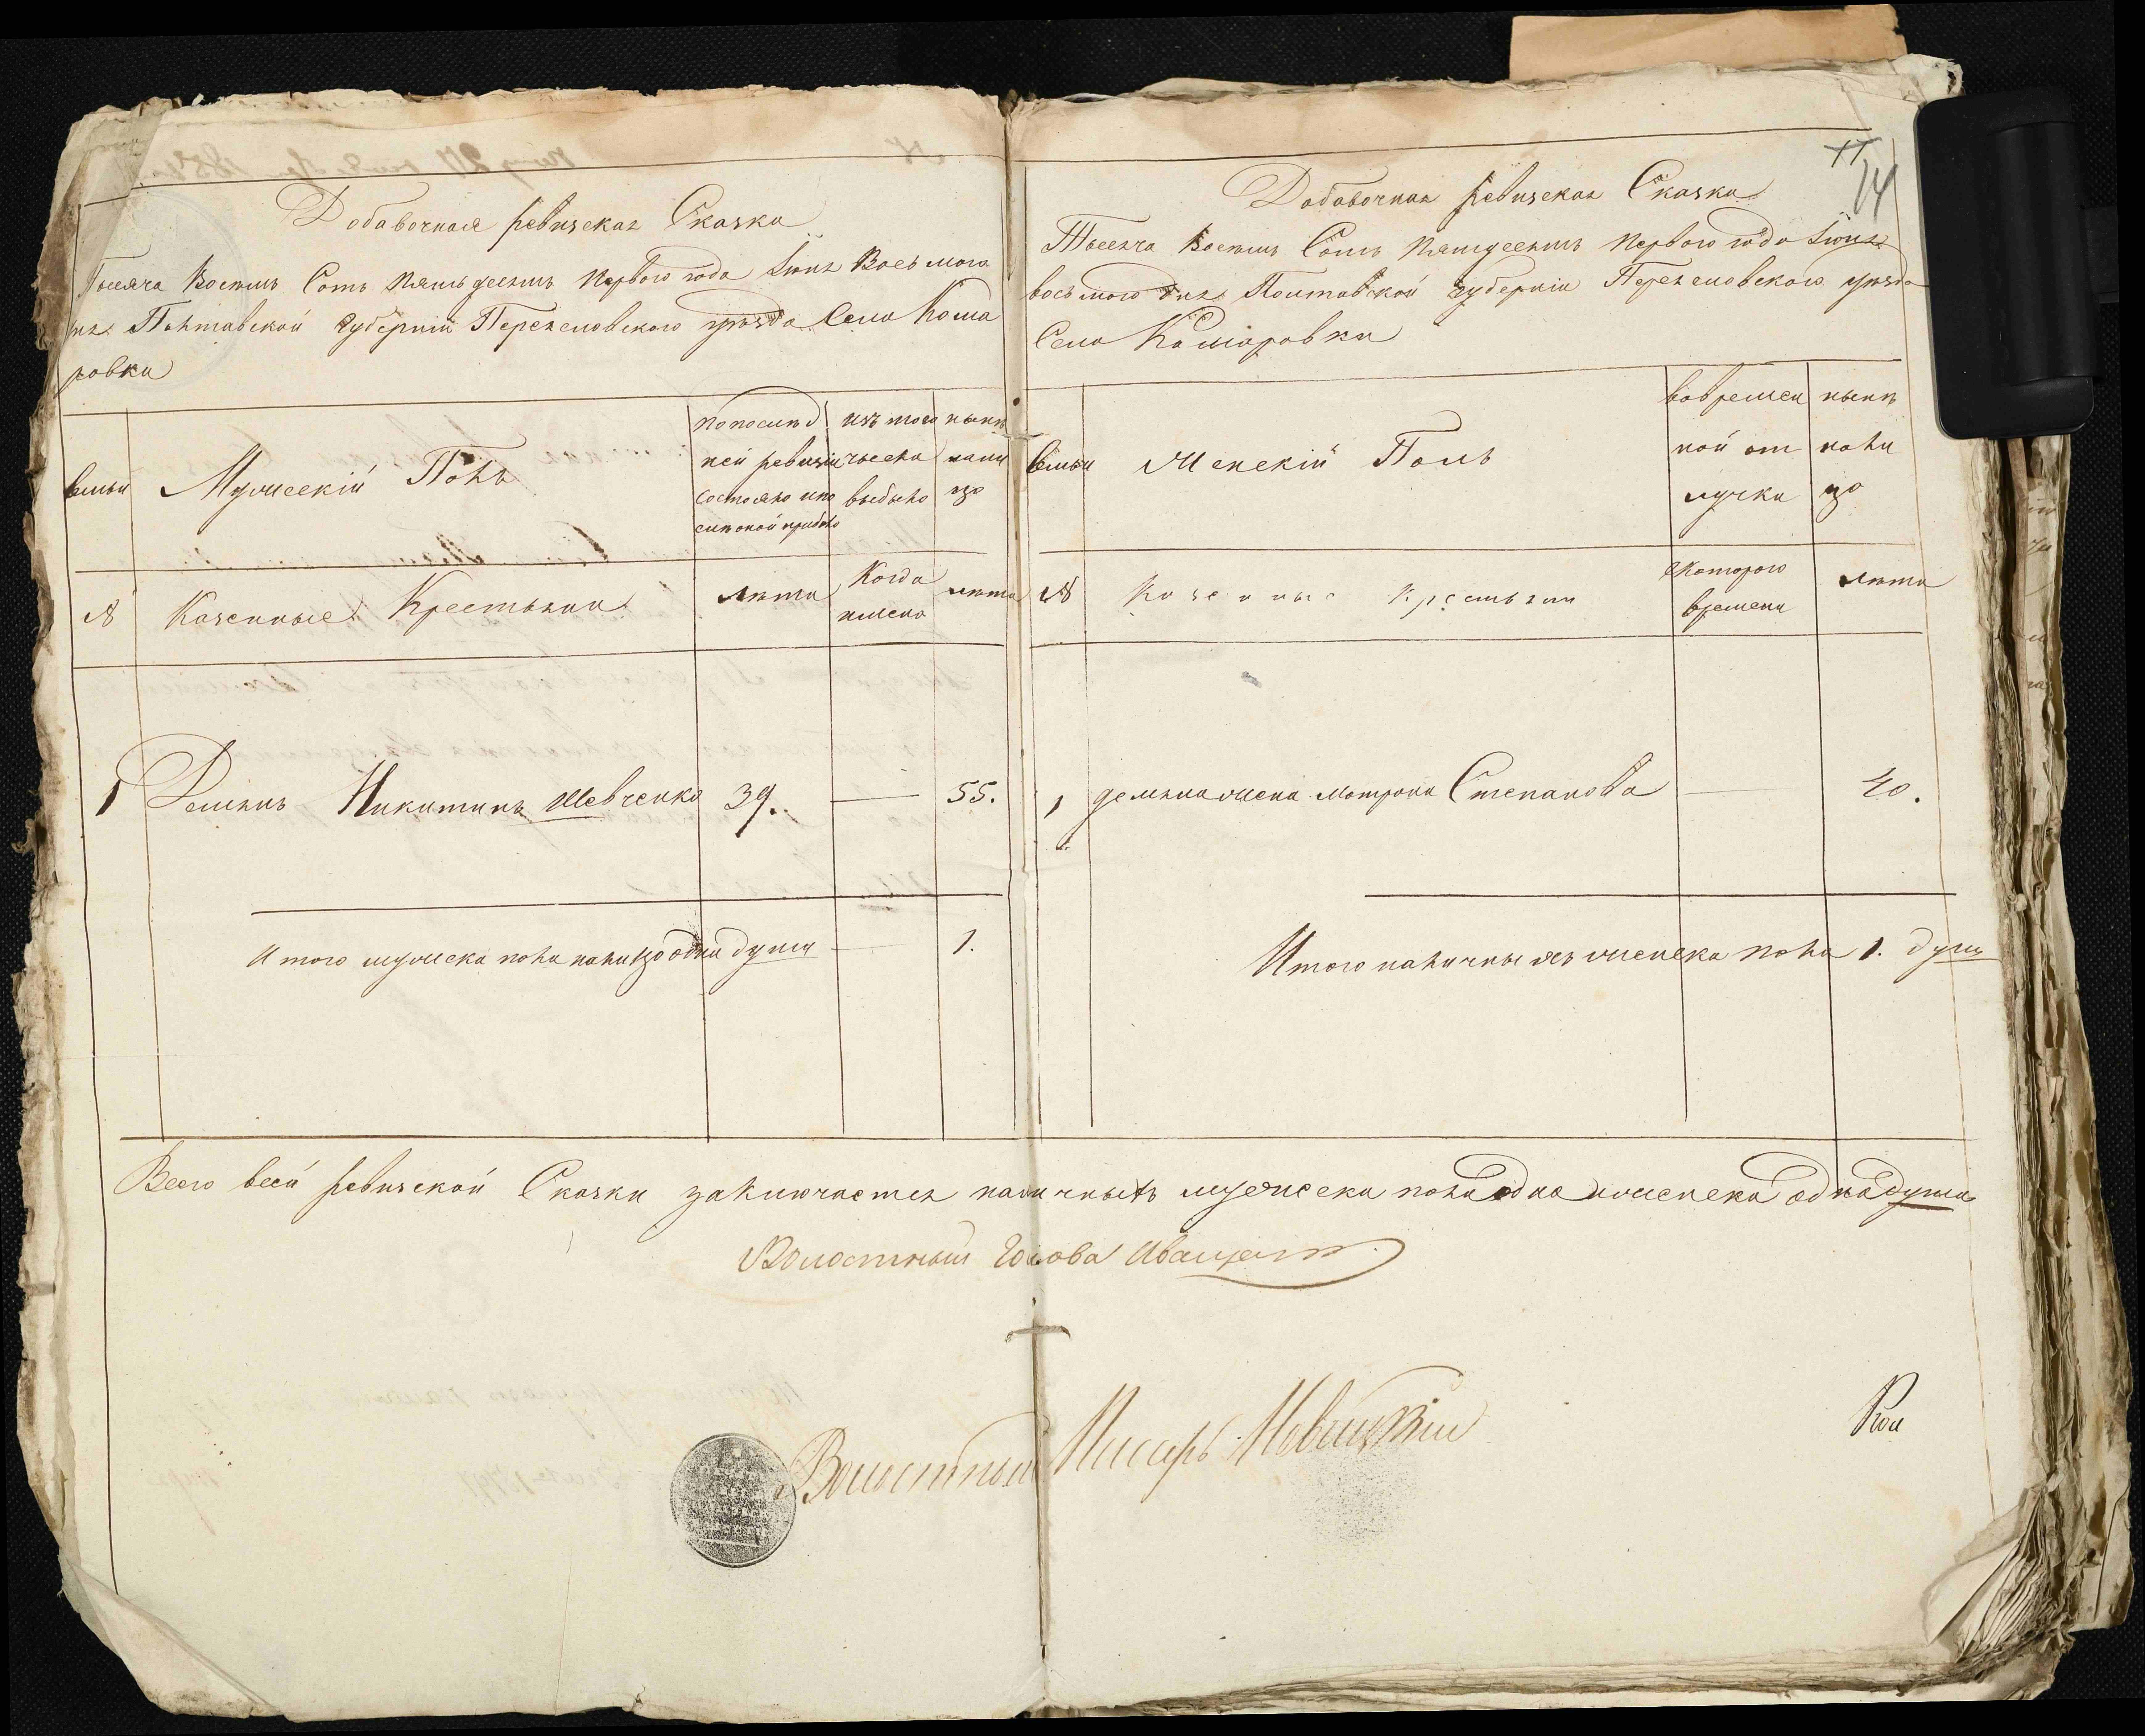 Добавочная ревизская Сказка
Тысяча Восемь Сотъ пятьдесятъ первого года Іюня Восьмого
дня Полтавской губерніи Переяславского уезда Села Кома
ровки
семьи
Мужескій Полъ
по послед
ней ревизіи
состояло ипо
сле оной прибыло
изъ того
числа
выбыло
ныне
нали
цо
№
Казенные Крестьяне
лета
Когда
имено
лета
1
Демянъ Никитинъ Шевченко
39.
—
55.
Итого мужеска пола налицо одна душа
—
1.
14
Добавочная ревизская Сказка
Тысяча Восемь Сотъ пятдесятъ первого года Іюня
восьмого дня Полтавской губерніи Переяславского уезда
Села Комаровки
семьи
Женскій Полъ
вовремен
ной от
лучки
ныне
нали
цо
№
Казенные Крестьяне
Скоторого
времени
лета
1
демяна жена Мотрона Степанова
—
40.
Итого наличныхъ женска пола 1. душ
Всего всей ревизской Сказки заключается наличныхъ мужеска пола одна и женска одна душа
Волостный Голова Иващенко
Волостный Писарь Новицкій